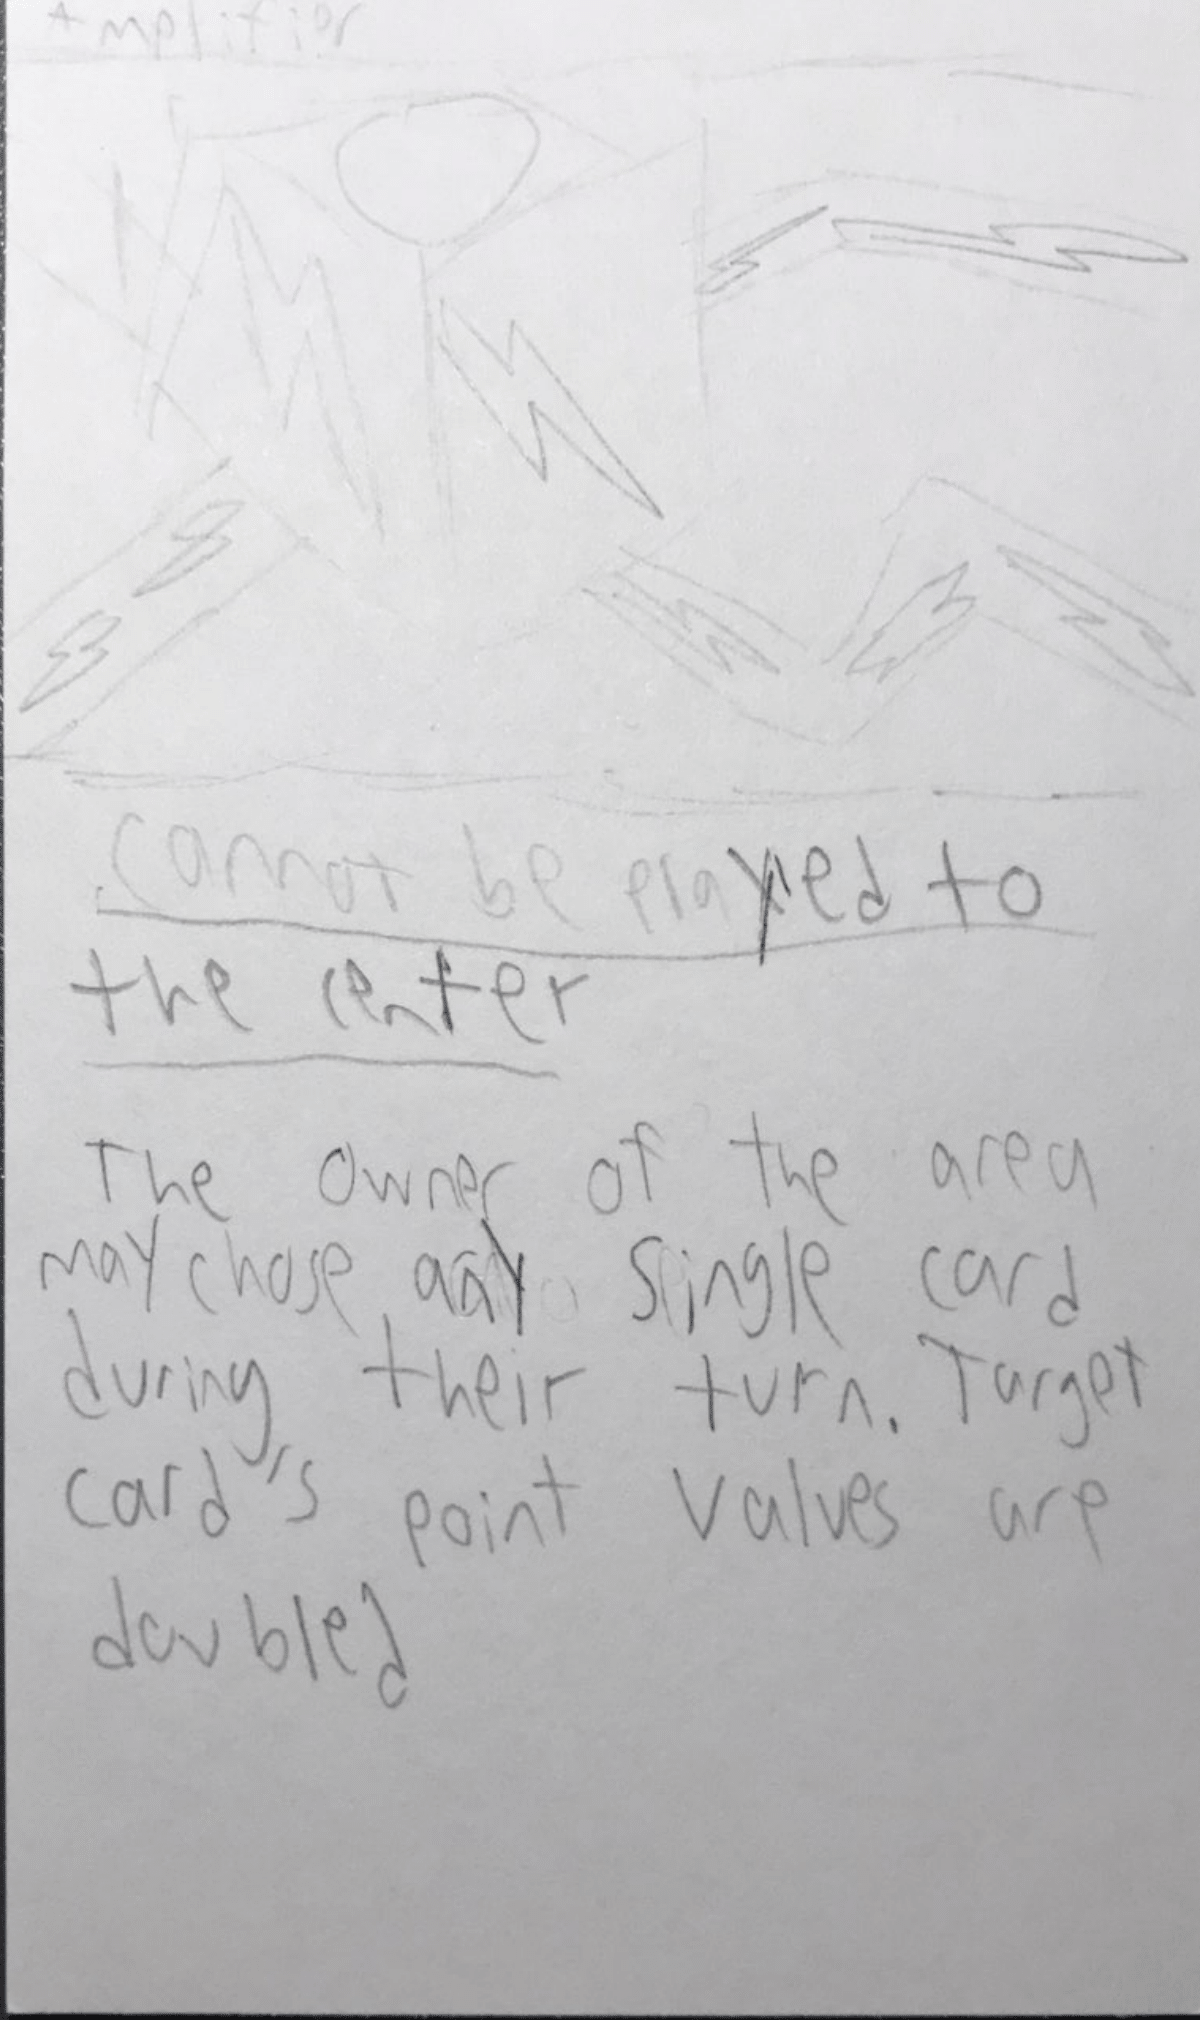 Amplifier
Cannot be played to
the center
The owner of the area
may chose any single card
during their turn. Target
card's point values are
doubled